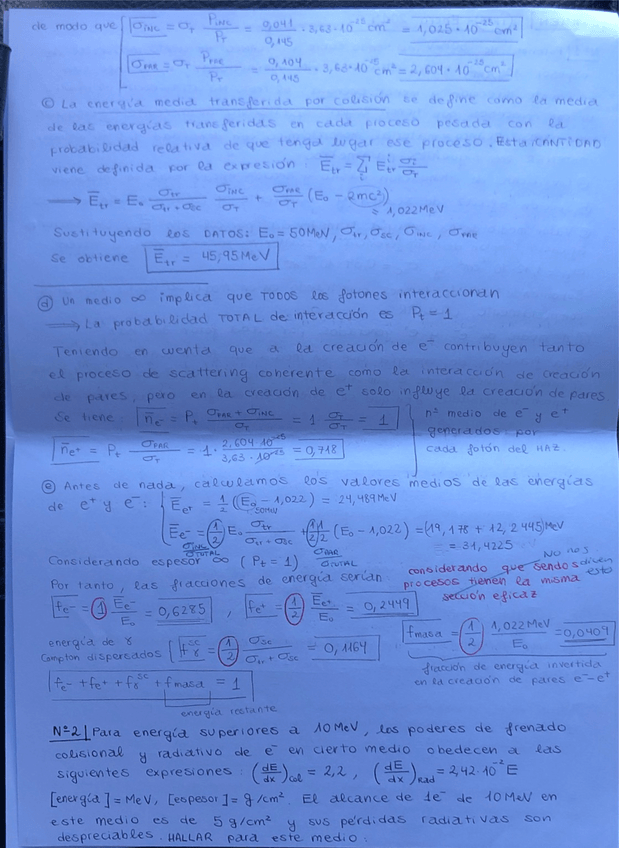 de modo que σ_INC = σ_T P_INC/P_T = 0,041/0,145 · 3,63·10^-25 cm² = 1,025·10^-25 cm²
σ_PAR = σ_T P_PAR/P_T = 0,104/0,145 · 3,63·10^-25 cm² = 2,604·10^-25 cm²
ⓒ La energía media transferida por colisión se define como la media
de las energías transferidas en cada proceso pesada con la
probabilidad relativa de que tenga lugar ese proceso. Esta CANTIDAD
viene definida por la expresión: Ē_tr = Σ_i E_tr^i σ_i/σ_T
⟹ Ē_tr = E₀ σ_tr/(σ_tr+σ_sc) σ_INC/σ_T + σ_PAR/σ_T (E₀ - 2mc²)
= 1,022 MeV
Sustituyendo los DATOS: E₀ = 50MeV, σ_tr, σ_sc, σ_INC, σ_PAR
Se obtiene Ē_tr = 45,95 MeV
ⓓ Un medio ∞ implica que TODOS los fotones interaccionan
⟹ La probabilidad TOTAL de interacción es P_t = 1
Teniendo en cuenta que a la creación de e⁻ contribuyen tanto
el proceso de scattering coherente como la interacción de creación
de pares, pero en la creación de e⁺ solo influye la creación de pares
Se tiene: n̄_e⁻ = P_t (σ_PAR + σ_INC)/σ_T = 1 σ_T/σ_T = 1
n̄_e⁺ = P_t σ_PAR/σ_T = 1 · 2,604·10^-25/3,63·10^-25 = 0,718
nº medio de e⁻ y e⁺
generados por
cada fotón del HAZ.
ⓔ Antes de nada, calculamos los valores medios de las energías
de e⁺ y e⁻: Ē_e⁺ = 1/2 (E₀ - 1,022) = 24,489 MeV
50MeV
Ē_e⁻ = (1/2) E₀ σ_tr/(σ_tr+σ_sc) + (1/2) 1/2 (E₀ - 1,022) = (19,178 + 12,2445) MeV
σ_INC/σ_TOTAL σ_PAR/σ_TOTAL = 31,4225
Considerando espesor ∞ (P_t = 1)
Por tanto, las fracciones de energía serían:
considerando que sendos
procesos tienen la misma
sección eficaz
No nos
dicen
esto
f_e⁻ = (1) Ē_e⁻/E₀ = 0,6285 , f_e⁺ = (1/2) Ē_e⁺/E₀ = 0,2449
energía de γ
Compton dispersados f_γ^sc = (1/2) σ_sc/(σ_tr+σ_sc) = 0,1164
f_masa = (1/2) 1,022 MeV/E₀ = 0,0409
fracción de energía invertida
en la creación de pares e⁻-e⁺
f_e⁻ + f_e⁺ + f_γ^sc + f_masa = 1
energía restante
Nº2| Para energía superiores a 10 MeV, los poderes de frenado
colisional y radiativo de e⁻ en cierto medio obedecen a las
siguientes expresiones: (dE/dx)_Col = 2,2, (dE/dx)_Rad = 2,42·10^-2 E
[energía] = MeV, [espesor] = g/cm². El alcance de 1e⁻ de 10 MeV en
este medio es de 5 g/cm² y sus pérdidas radiativas son
despreciables. HALLAR para este medio: